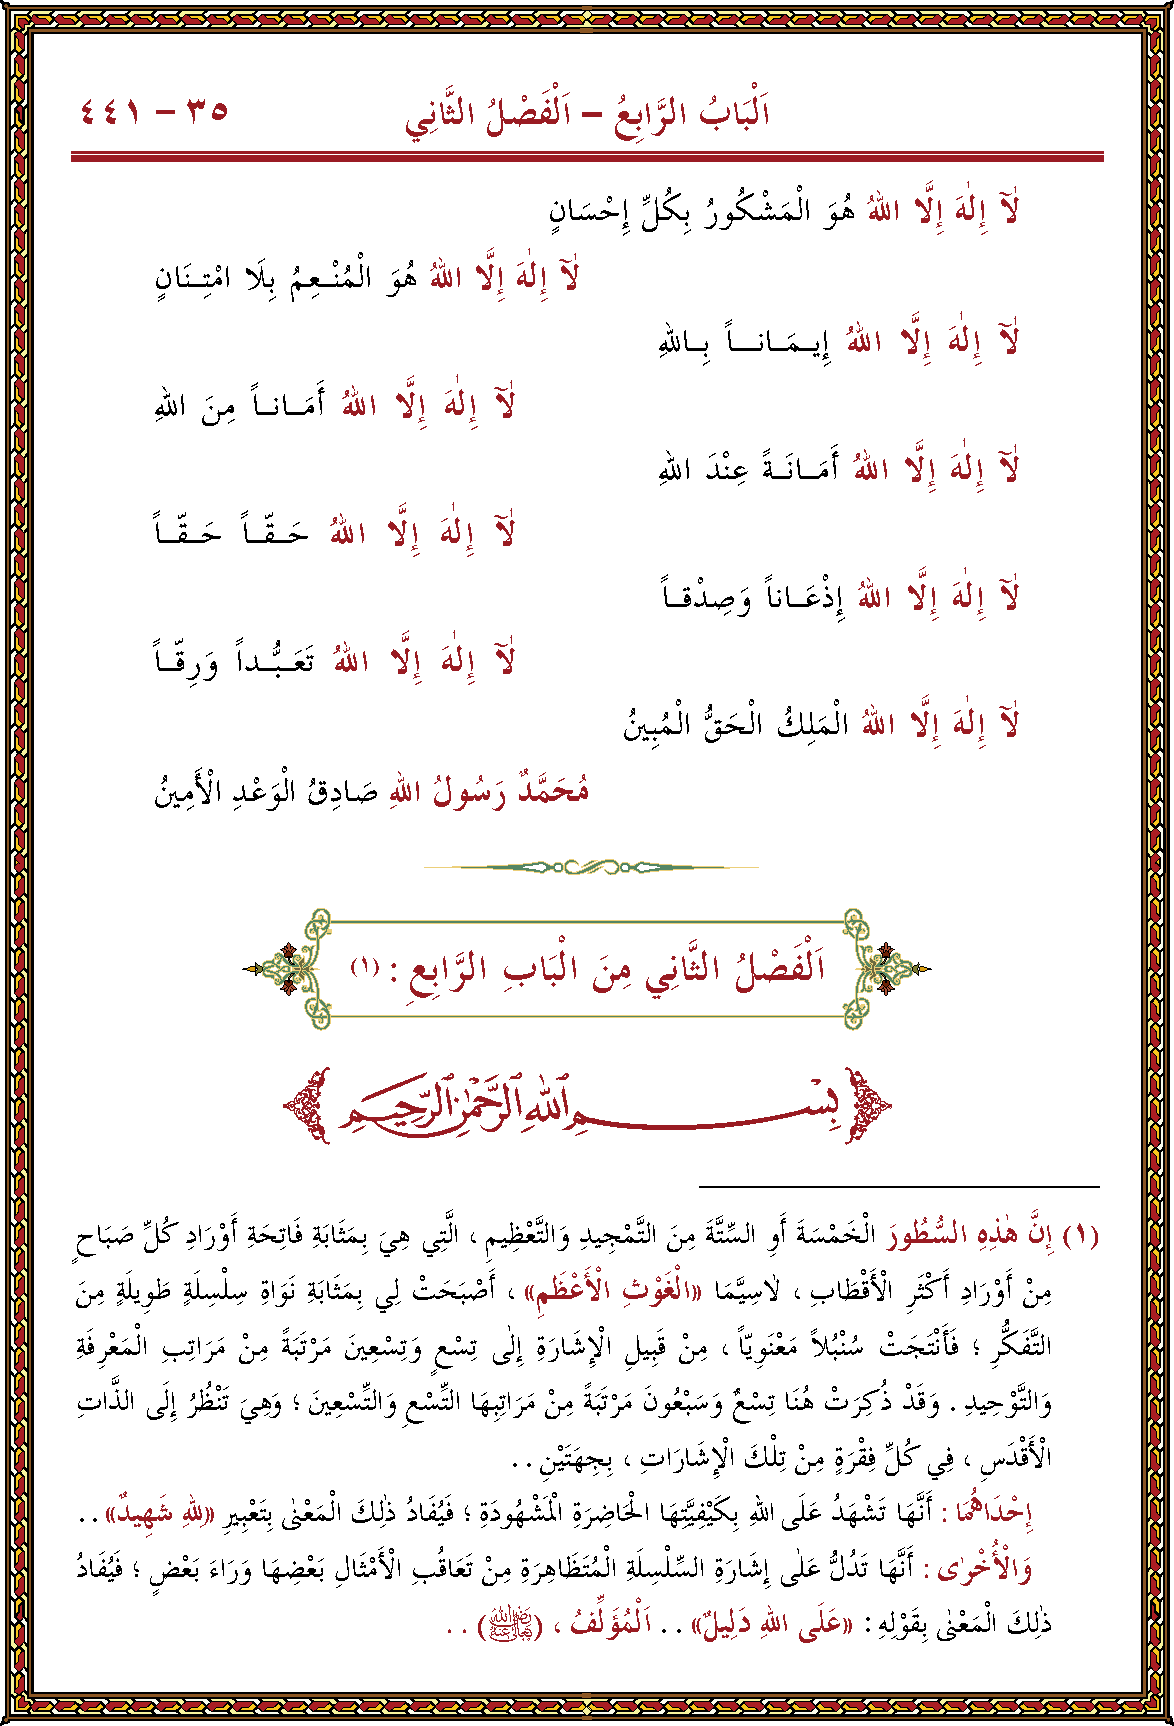 اَلْبَابُ الرَّابِعُ – اَلْفَصْلُ الثَّانِي ٣٥ – ٤٤١
لَآ إِلٰهَ إِلَّا اللهُ هُوَ الْمَشْكُورُ بِكُلِّ إِحْسَانٍ
لَآ إِلٰهَ إِلَّا اللهُ هُوَ الْمُنْـعِمُ بِلَا امْتِـنَانٍ
لَآ إِلٰهَ إِلَّا اللهُ إِيـمَـانـاً بِـاللهِ
لَآ إِلٰهَ إِلَّا اللهُ أَمَـانـاً مِنَ اللهِ
لَآ إِلٰهَ إِلَّا اللهُ أَمَـانَـةً عِنْدَ اللهِ
لَآ إِلٰهَ إِلَّا اللهُ حَـقّـاً حَـقّـاً
لَآ إِلٰهَ إِلَّا اللهُ إِذْعَـاناً وَصِدْقـاً
لَآ إِلٰهَ إِلَّا اللهُ تَعَـبُّـداً وَرِقّـاً
لَآ إِلٰهَ إِلَّا اللهُ الْمَلِكُ الْحَقُّ الْمُبِينُ
مُحَمَّدٌ رَسُولُ اللهِ صَادِقُ الْوَعْدِ الْأَمِينُ
اَلْفَصْلُ الثَّانِي مِنَ الْبَابِ الرَّابِعِ : (١)
بِسْـــمِ اللهِ الرَّحْمٰنِ الرَّحِيمِ
(١) إِنَّ هٰذِهِ السُّطُورَ الْخَمْسَةَ أَوِ السِّتَّةَ مِنَ التَّمْجِيدِ وَالتَّعْظِيمِ ، الَّتِي هِيَ بِمَثَابَةِ فَاتِحَةِ أَوْرَادِ كُلِّ صَبَاحٍ
مِنْ أَوْرَادِ أَكْثَرِ الْأَقْطَابِ ، لاٰسِيَّمَا «الْغَوْثِ الْأَعْظَمِ» ، أَصْبَحَتْ لِي بِمَثَابَةِ نَوَاةِ سِلْسِلَةٍ طَوِيلَةٍ مِنَ
التَّفَكُّرِ ؛ فَأَنْتَجَتْ سُنْبُلاً مَعْنَوِيّاً ، مِنْ قَبِيلِ الْإِشَارَةِ إِلٰى تِسْعٍ وَتِسْعِينَ مَرْتَبَةً مِنْ مَرَاتِبِ الْمَعْرِفَةِ
وَالتَّوْحِيدِ . وَقَدْ ذُكِرَتْ هُنَا تِسْعٌ وَسَبْعُونَ مَرْتَبَةً مِنْ مَرَاتِبِهَا التِّسْعِ وَالتِّسْعِينَ ؛ وَهِيَ تَنْظُرُ إِلَى الذَّاتِ
الْأَقْدَسِ ، فِي كُلِّ فِقْرَةٍ مِنْ تِلْكَ الْإِشَارَاتِ ، بِجِهَتَيْنِ . .
إِحْدَاهُمَا : أَنَّهَا تَشْهَدُ عَلَى اللهِ بِكَيْفِيَّتِهَا الْحَاضِرَةِ الْمَشْهُودَةِ ؛ فَيُفَادُ ذٰلِكَ الْمَعْنٰى بِتَعْبِيرِ «لِلّٰهِ شَهِيدٌ» . .
وَالْأُخْرٰى : أَنَّهَا تَدُلُّ عَلٰى إِشَارَةِ السِّلْسِلَةِ الْمُتَظَاهِرَةِ مِنْ تَعَاقُبِ الْأَمْثَالِ بَعْضِهَا وَرَاءَ بَعْضٍ ؛ فَيُفَادُ
ذٰلِكَ الْمَعْنٰى بِقَوْلِهِ : «عَلَى اللهِ دَلِيلٌ» . . اَلْمُؤَلِّفُ ، (رضي الله تعالى عنه) . .